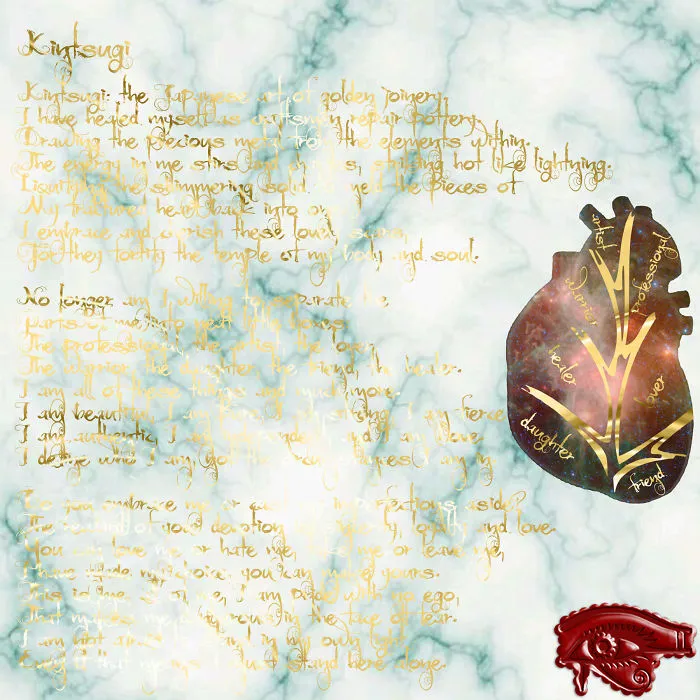 Kintsugi
Kintsugi: the Japanese art of golden joinery,
I have healed myself as craftsmen repair pottery.
Drawing the precious metal from the elements within.
The energy in me stirs and striking hot like lightning.
Liquifying the shimmering solder to meld the pieces of
My fractured heart back into one.
I embrace and cherish these lovely scars,
For they fortify the temple of my body and soul.
No longer am I willing to separate the
parts of me into neat little boxes.
The professional, the artist, the lover,
The warrior, the daughter, the friend, the healer.
I am all of these things and much more.
I am beautiful, I am I am strong, I am fierce
I am authentic, I am and I am love.
I define who I am, not the I am in.
Do you embrace me or imperfections aside?
The reward of your devotion is loyalty and love.
You can love me or hate me, take me or leave me,
I have made my choice, you can make yours.
This is me, all of me, I am with no ego,
That my in the face of fear.
I am not afraid to stand in my own light
Even if that means I must stand here alone.
artist
professional
warrior
healer
lover
daughter
friend